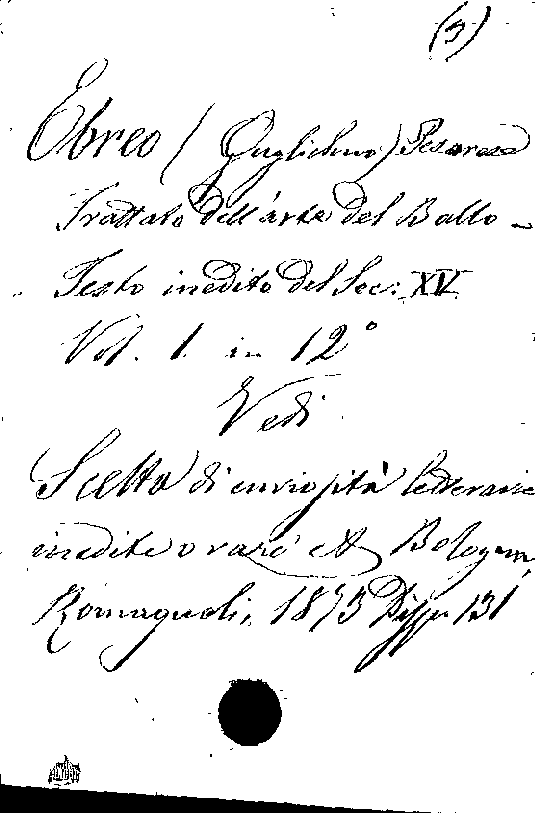 (3)
Ebreo (Guglielmo) Pesarese
Trattato dell'arte del Ballo -
Testo inedito del Sec: XV.
Vol. 1. in 12°
Vedi
Scelta di curiosità letterarie
inedite o rare Bologna,
Romagnoli, 1873 Disp 131